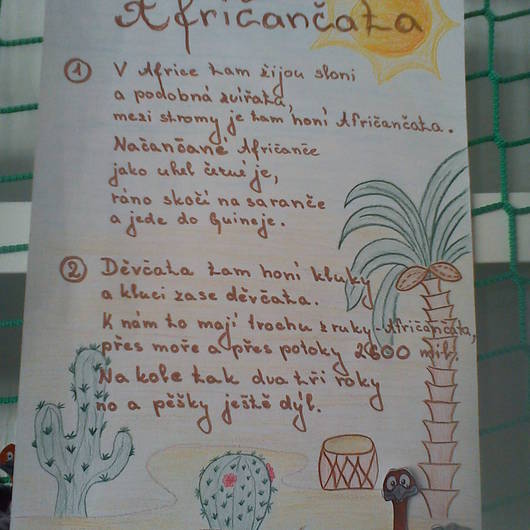 Afričančata
1 V Africe tam žijou sloni
a podobná zvířata,
mezi stromy je tam honí Afričančata.
Načančané Afričanče
jako uhel černé je,
ráno skočí na saranče
a jede do Guineje.
2 Děvčata tam honí kluky
a kluci zase děvčata.
K nám to mají trochu z ruky - Afričančata,
přes moře a přes potoky 2600 mil.
Na kole tak dva tři roky
no a pěšky ještě dýl.